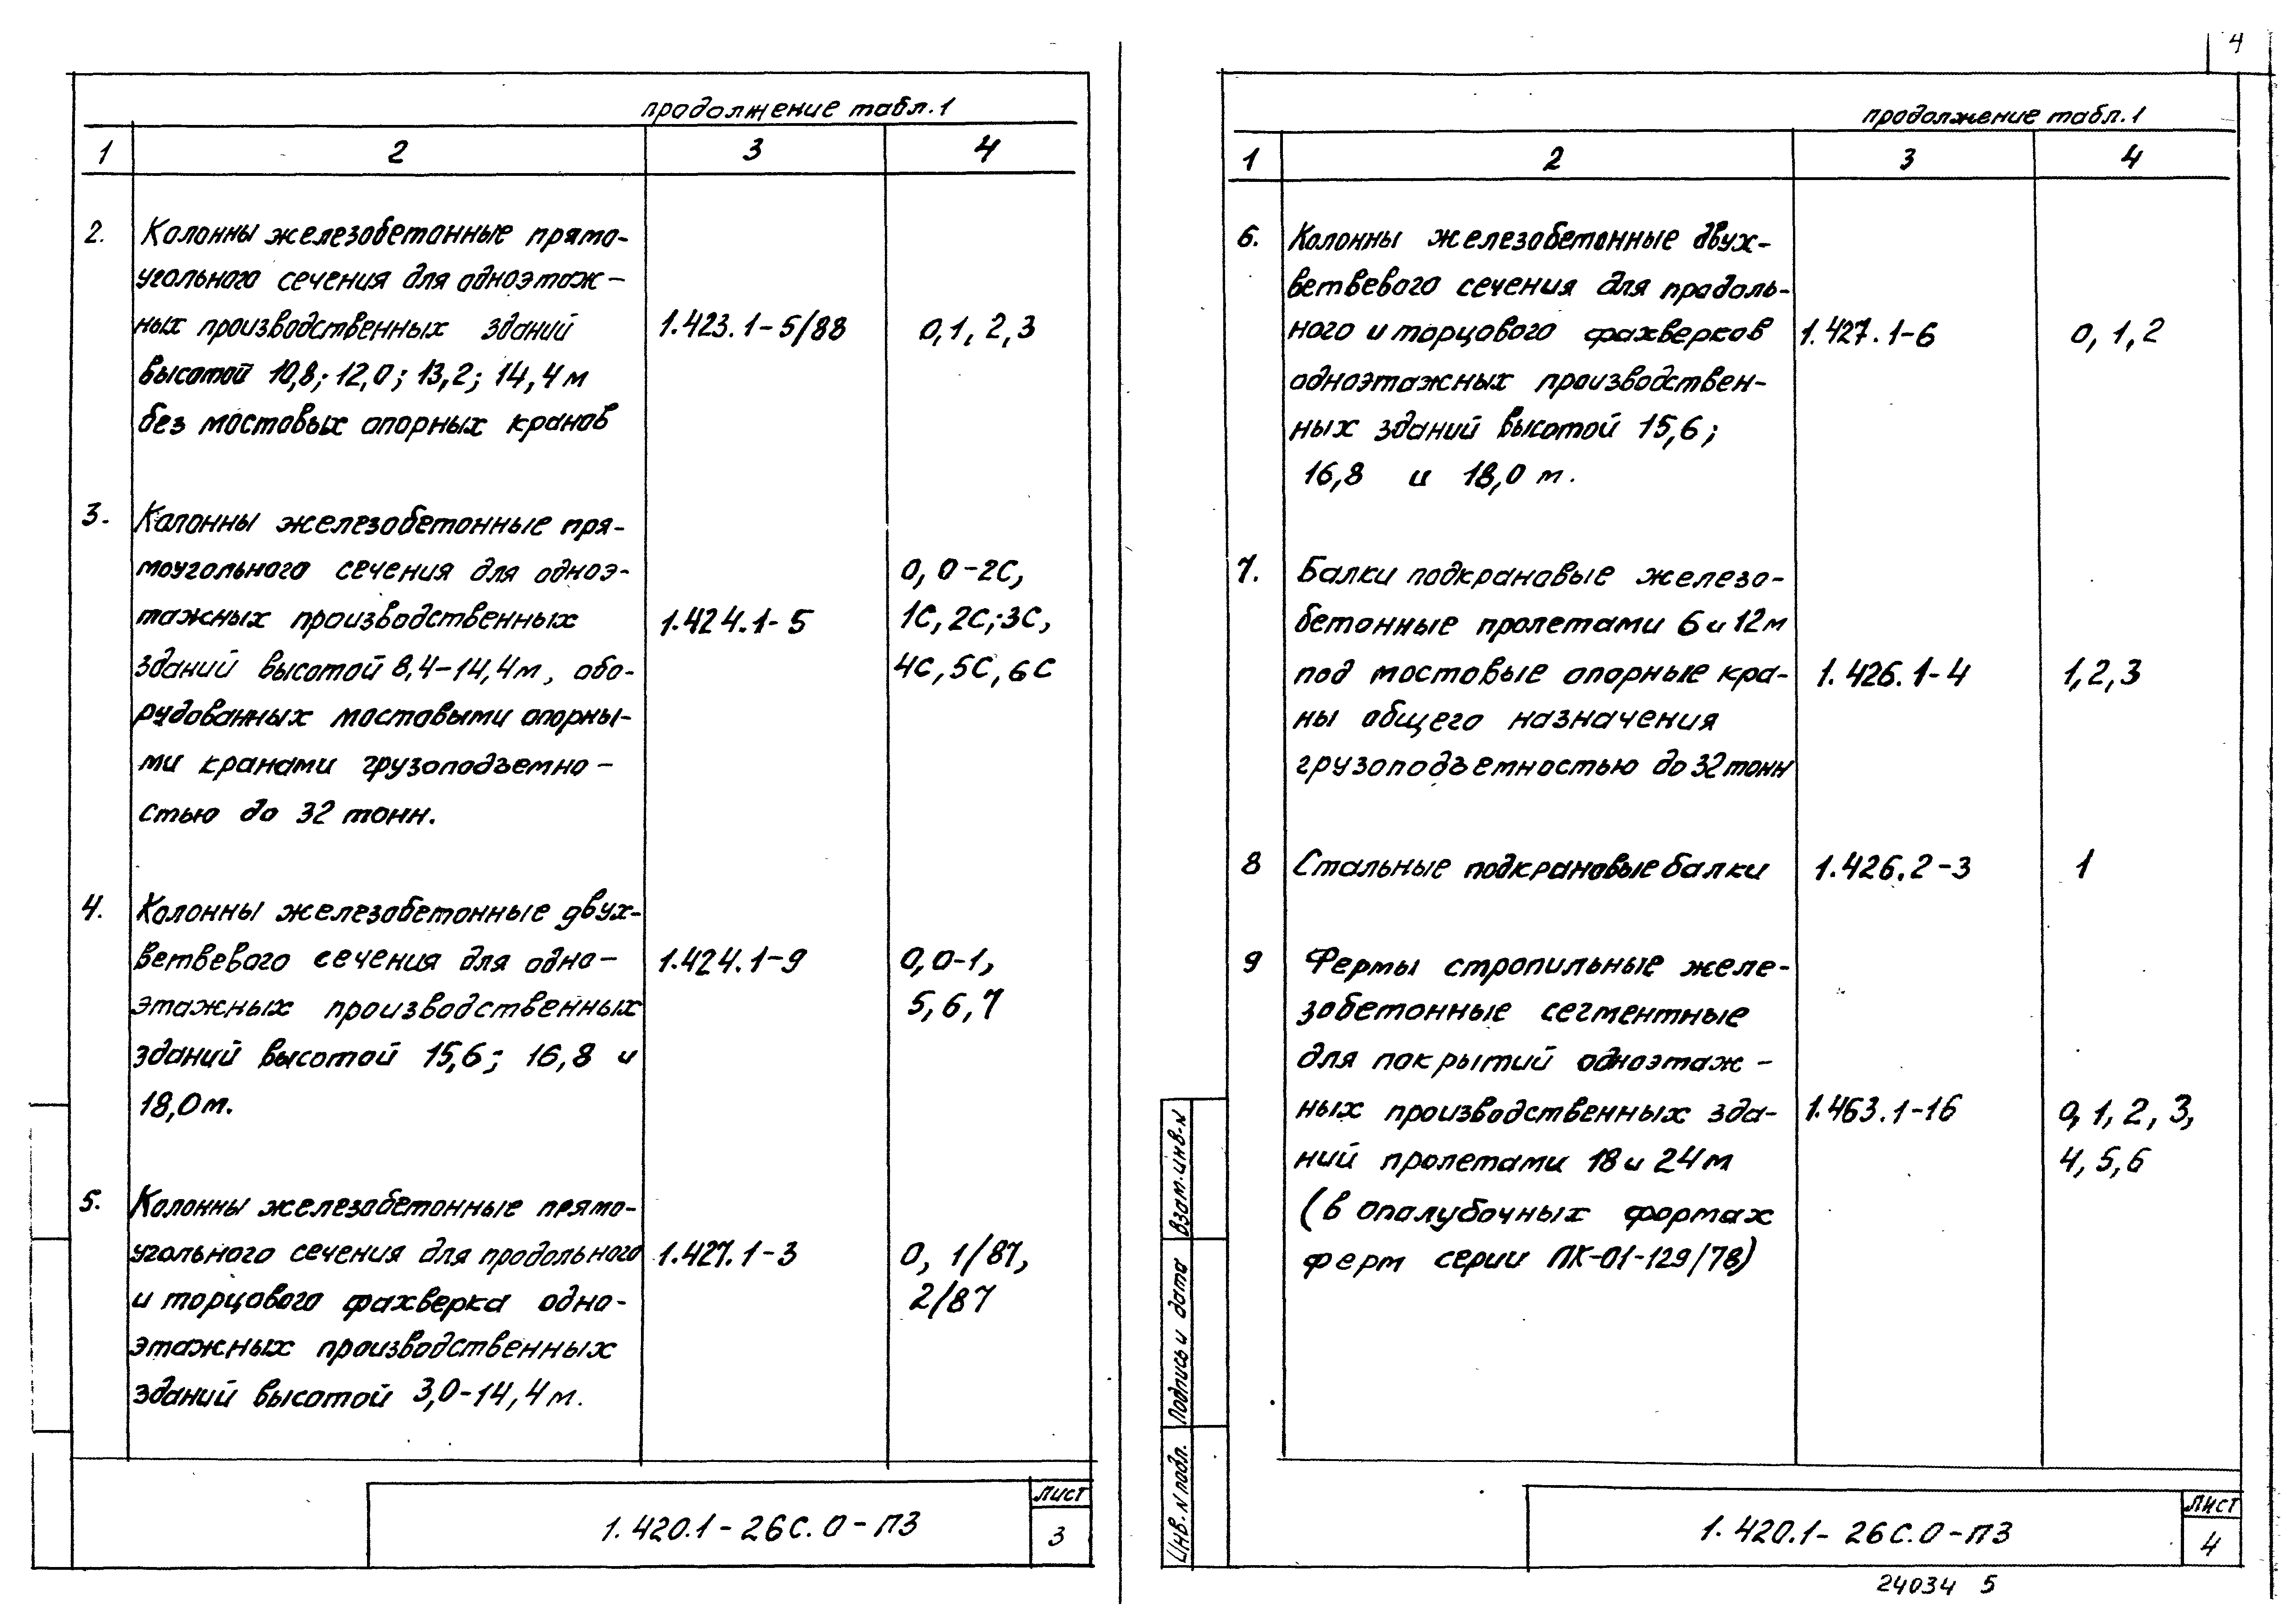 4
продолжение табл.1
1 2 3 4
2. Колонны железобетонные прямо-
угольного сечения для одноэтаж-
ных производственных зданий 1.423.1-5/88 0,1,2,3
высотой 10,8; 12,0; 13,2; 14,4м
без мостовых опорных кранов
3. Колонны железобетонные пря-
моугольного сечения для одноэ- 0, 0-2С,
тажных производственных 1.424.1-5 1С, 2С; 3С,
зданий высотой 8,4-14,4м, обо- 4С, 5С, 6С
рудованных мостовыми опорны-
ми кранами грузоподъемно-
стью до 32 тонн.
4. Колонны железобетонные двух-
ветвевого сечения для одно- 1.424.1-9 0,0-1,
этажных производственных 5,6,7
зданий высотой 15,6; 16,8 и
18,0м.
5. Колонны железобетонные прямо-
угольного сечения для продольного 1.427.1-3 0, 1/87,
и торцового фахверка одно- 2/87
этажных производственных
зданий высотой 3,0-14,4м.
1.420.1-26С.0-ПЗ
Лист
3
продолжение табл.1
1 2 3 4
6. Колонны железобетонные двух-
ветвевого сечения для продоль-
ного и торцового фахверков 1.427.1-6 0,1,2
одноэтажных производствен-
ных зданий высотой 15,6;
16,8 и 18,0 м.
7. Балки подкрановые железо-
бетонные пролетами 6 и 12м
под мостовые опорные кра- 1.426.1-4 1,2,3
ны общего назначения
грузоподъемностью до 32 тонн
8 Стальные подкрановые балки 1.426.2-3 1
9 Фермы стропильные желе-
зобетонные сегментные
для покрытий одноэтаж-
ных производственных зда- 1.463.1-16 0,1,2,3,
ний пролетами 18 и 24м 4,5,6
(в опалубочных формах
ферм серии ПК-01-129/78)
Взам. инв. N
Подпись и дата
Инв. N подл.
1.420.1-26С.0-ПЗ
Лист
4
24034 5